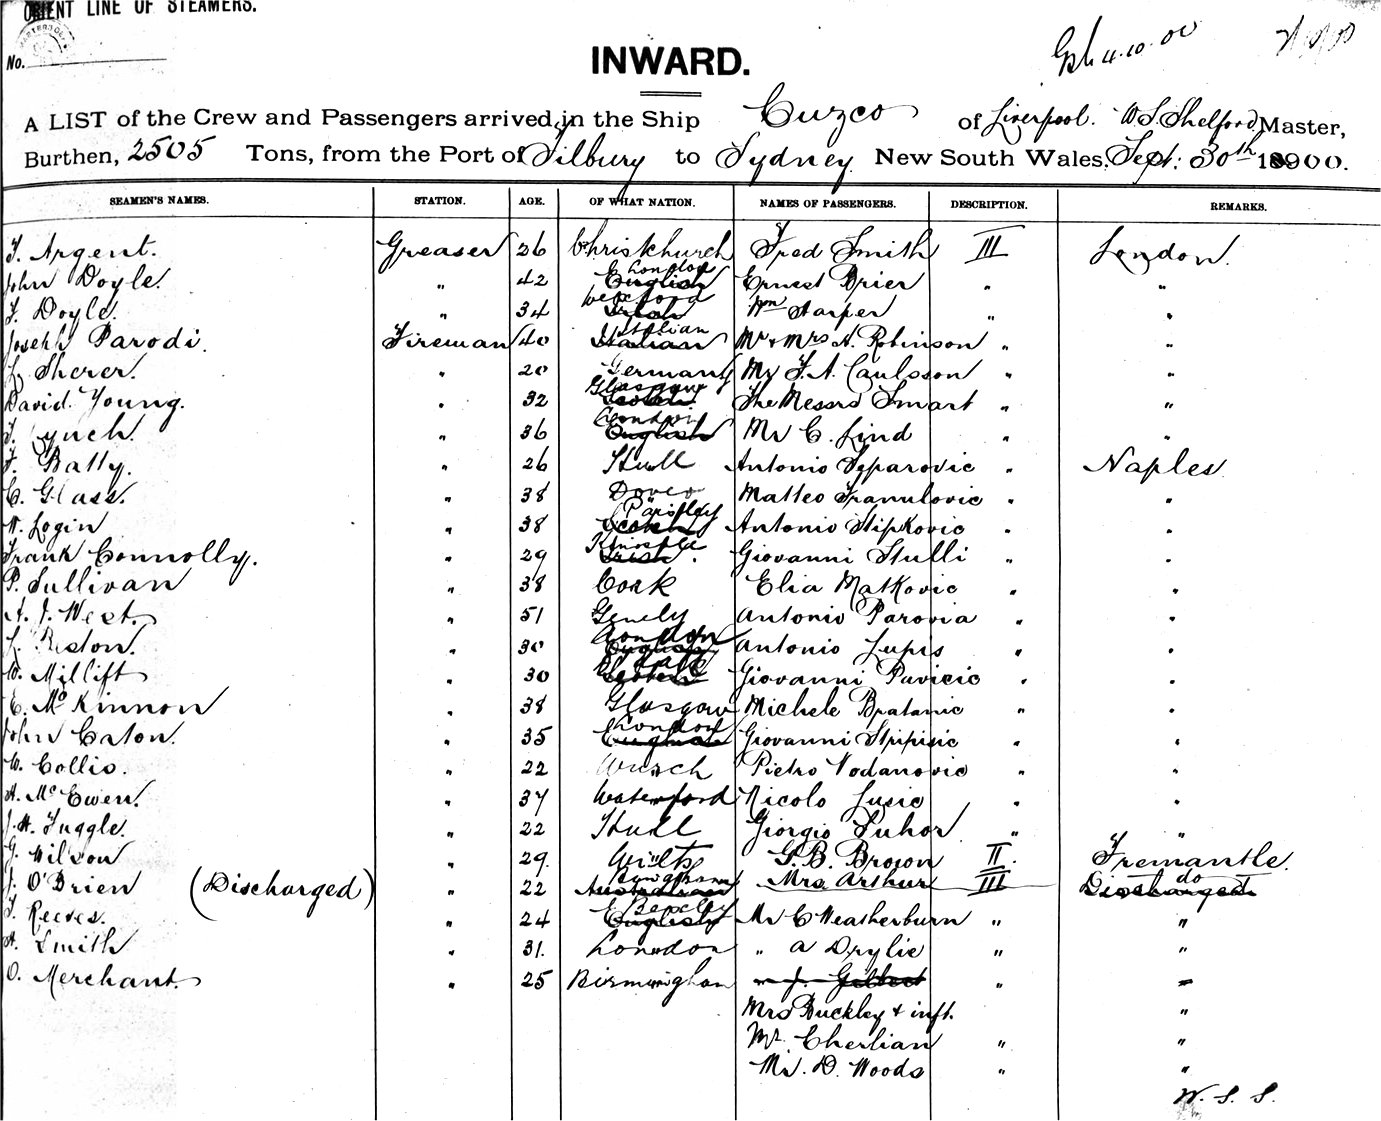 ORIENT LINE OF STEAMERS.
No.
INWARD.
4.10.00
A LIST of the Crew and Passengers arrived in the Ship Cuzco of Liverpool. W S Shelford Master,
Burthen, 2505 Tons, from the Port of Tilbury to Sydney New South Wales, Sept: 30th 1900.
SEAMEN'S NAMES. STATION. AGE. OF WHAT NATION. NAMES OF PASSENGERS. DESCRIPTION. REMARKS.
T. Argent. Greaser 26 Christchurch Fred Smith III London.
John Doyle. " 42 London English Ernest Brier " "
T. Doyle. " 34 Wexford Irish Wm Harper " "
Joseph Parodi. Fireman 40 Italian Italian Mr & Mrs A. Robinson " "
Sherer. " 20 Germany Mr F. A. Caulsson " "
David Young. " 32 Glasgow Scotch The Messrs Smart " "
Lynch. " 36 London English Mr C. Lind " "
Batty. " 26 Hull Antonio Naples
C. Glass. " 38 Dover Matteo Franulovic " "
W. Login " 38 Scotch Antonio Stipkovic " "
Frank Connolly. " 29 Irish. Giovanni Stulli " "
P. Sullivan " 38 Cork Elia Matkovic " "
A. J. West. " 51 Antonio Parovia " "
Reston. " 30 London English Antonio Lupis " "
W. Millift " 30 Giovanni Pavicic " "
C. McKinnon " 38 Glasgow Michele Bratanic " "
John Eaton. " 35 London English Giovanni " "
W. Collis. " 22 Pietro Vodanovic " "
A. McEwen. " 37 Waterford Nicolo Lusic " "
J. H. Tuggle. " 22 Hull Giorgio Suhor " "
G. Wilson " 29. Wilts G. B. Brown II. Fremantle.
J. O'Brien (Discharged) " 22 Australian Mrs Arthur III do Discharged
T. Reeves. " 24 English Mr C Weatherburn " "
A. Smith " 31. London " A Drylie " "
O. Merchant. " 25 Birmingham " J. Gilbert " "
Mrs Buckley & inft. "
Mr. Cherlian " "
Mr. D. Woods " "
W. S. S.